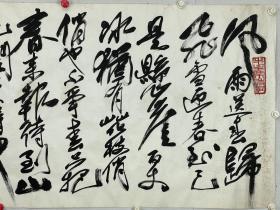 風雨送春歸
飛雪迎春到已
是懸崖百丈
冰猶有花枝俏
俏也不爭春只把
春来報待到山